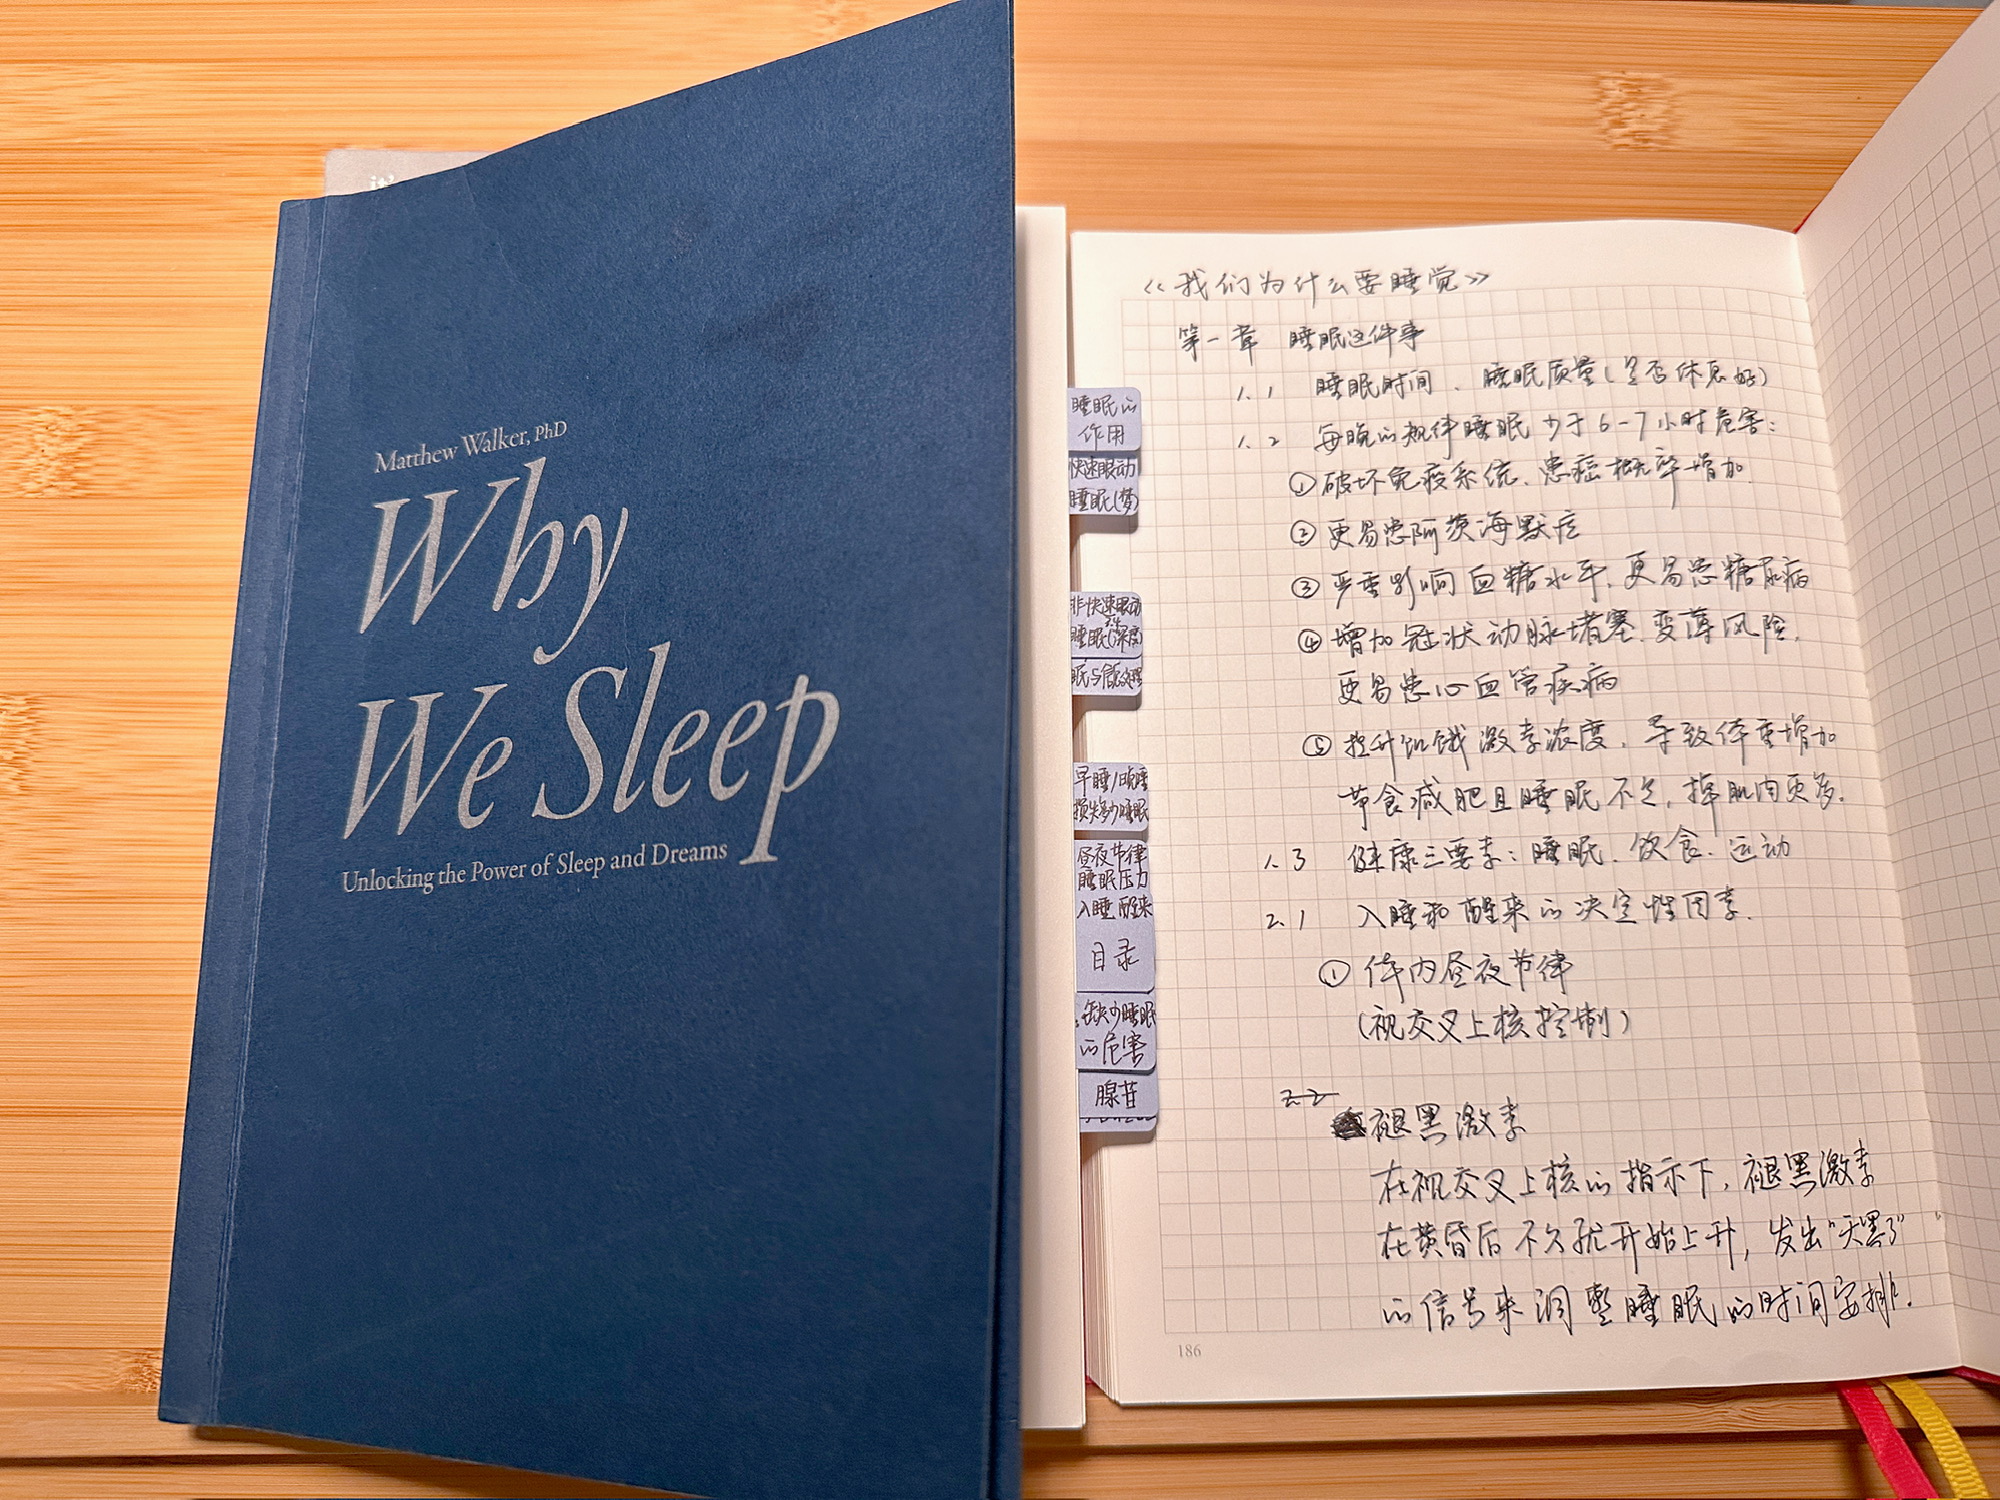 it'
Matthew Walker, PhD
Why
We Sleep
Unlocking the Power of Sleep and Dreams
睡眠的
作用
快速眼动
睡眠(梦)
非快速眼动
睡眠(深度)
眠与信息处理
早睡/晚睡
损失多少睡眠
昼夜节律
睡眠压力
入睡醒来
目录
缺少睡眠
的危害
腺苷
《我们为什么要睡觉》
第一章 睡眠这件事
1.1 睡眠时间、睡眠质量(是否休息好)
1.2 每晚的规律睡眠少于6-7小时危害:
①破坏免疫系统、患癌概率增加.
②更易患阿茨海默症
③严重影响血糖水平,更易患糖尿病
④增加冠状动脉堵塞、变薄风险,
更易患心血管疾病
⑤提升饥饿激素浓度,导致体重增加
节食减肥且睡眠不足,掉肌肉更多.
1.3 健康三要素:睡眠、饮食、运动
2.1 入睡和醒来的决定性因素.
①体内昼夜节律
(视交叉上核控制)
2.2
褪黑激素
在视交叉上核的指示下,褪黑激素
在黄昏后不久就开始上升,发出“天黑了”
的信号来调整睡眠的时间安排.
186